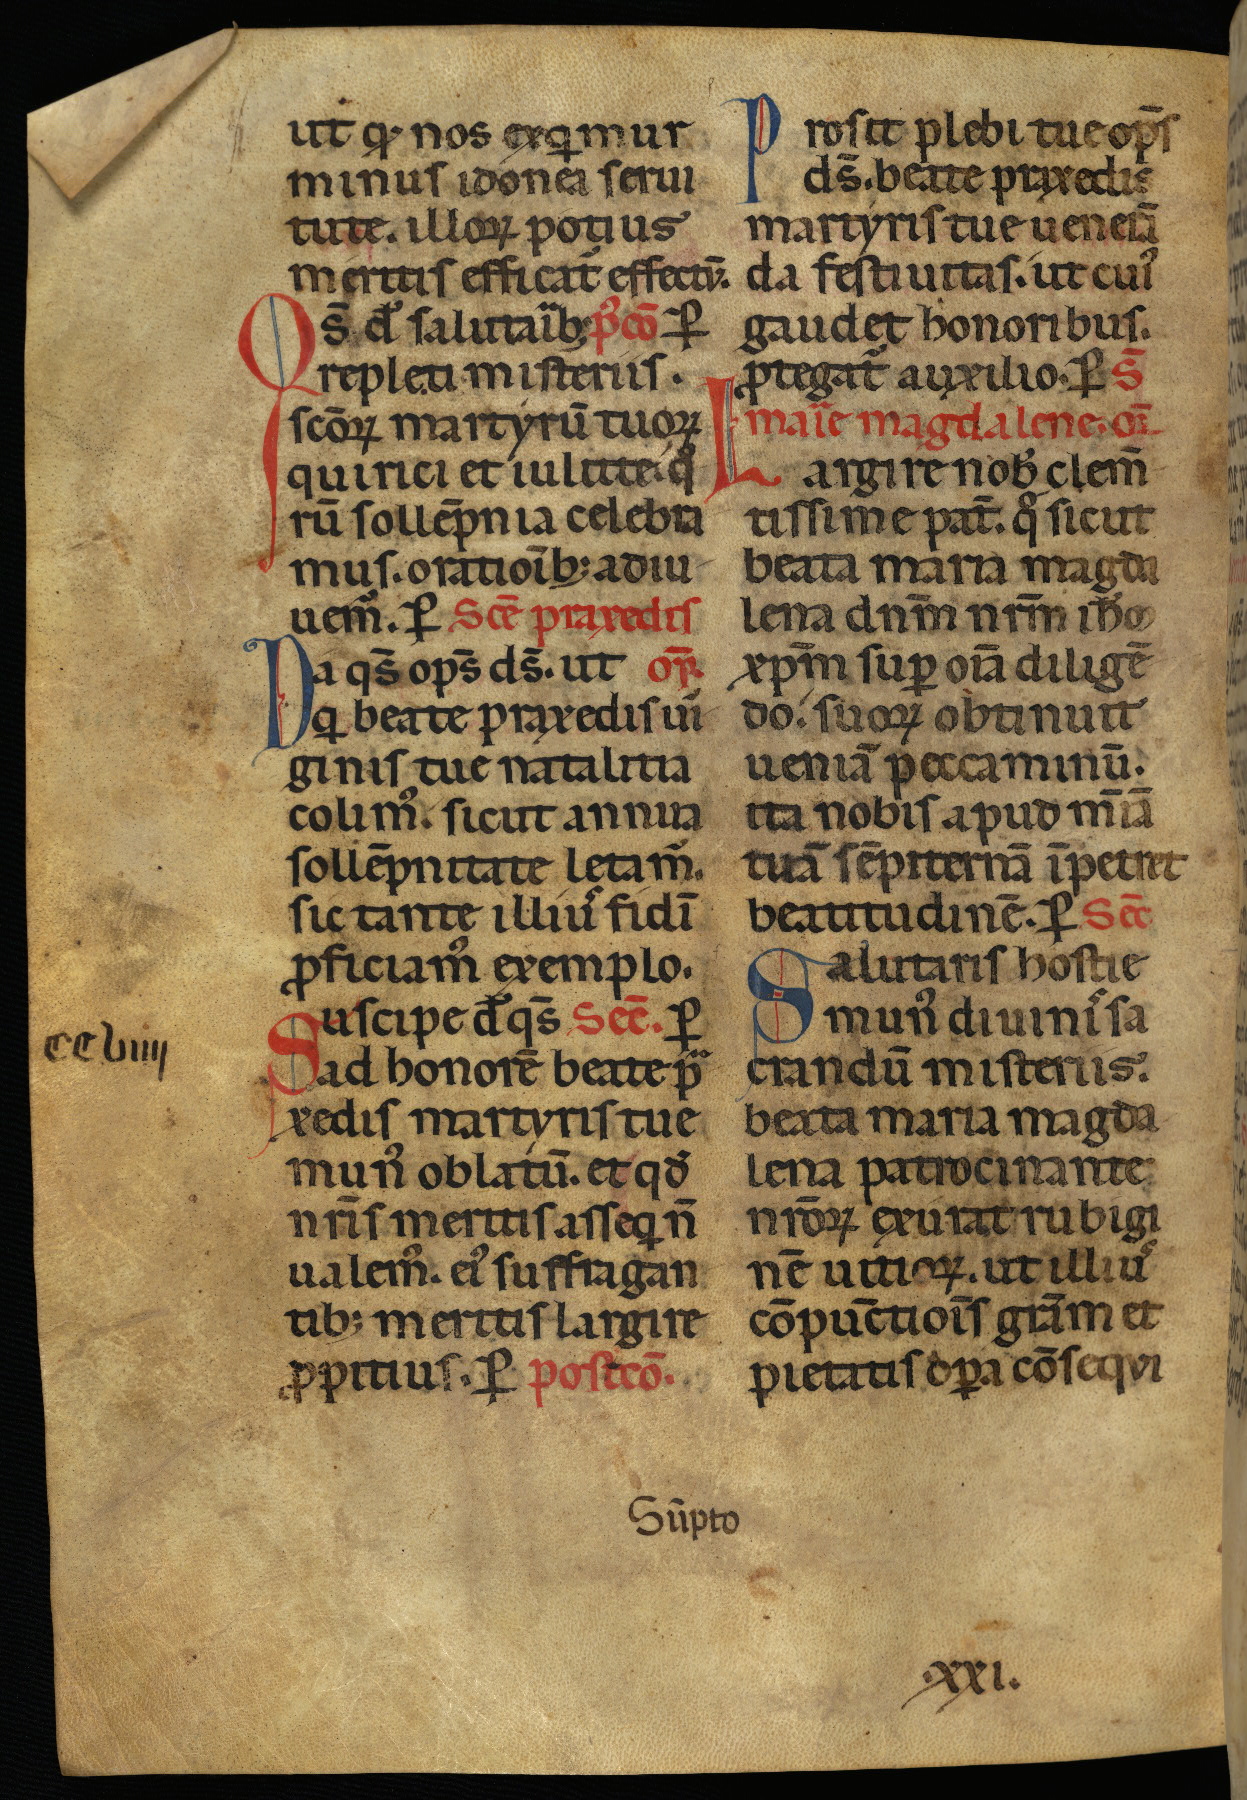 ut q̣ nos exq̇imur
minus idonea serui
tute. illoꝝ potius
meritis efficiat̃ effectꝰ.
S̄ dꝰ salutarib; p̾cō ꝑ
repleti misteriis.
sc̄oꝝ martyrū tuoꝝ
quirici et iulitte. qͦ
rū sollēpnia celebra
mus. oratioīb; adiu
uem̃. ꝑ Sc̄e praxedis
Da qs̄ opс̄ ds̄. ut or̄.
q̇ beate praxedis uir̄
ginis tue natalitia
colim̾. sicut annua
sollēpnitate letam̃.
sic tante illiuᷤ fidī
ꝓficiam̾ exemplo.
Suscipe dꝰ qs̄ Sec̄. ꝑ
ad honorē beate pͣ
xedis martyris tue
mun̾ oblatū. et qđ
nr̄is meritis asseq̇ n̄
ualem̾. ei᷒ suffragan
tib; meritis largire
ꝓpitius. ꝑ postcō.
Prosit plebi tue opс̄
ds̄. beate praxedis
martyris tue uenerā
da festiuitas. ut cui᷒
gaudet honoribus.
ꝓtegat̃ auxilio. ꝑ S̄
marie magdalene. or̄
Largire nob̾ clem̄
tissime pat̄. qͦ sicut
beata maria magda
lena dnm̄ nrm̄ ihm̄
xpm̄ sup̱ oīa diligē
do. suoꝝ obtinuit
ueniā peccaminū.
ita nobis apud m̄iā
tuā sēpiternā īpetret
beatitudinē. ꝑ Sec̄
Salutaris hostie
mun̾ diuiniᷤ sa
crandū misteriis.
beata maria magda
lena patrocinante
nr̄oꝝ exurat rubigi
nē uitioꝝ. ut illiuᷤ
cōpūctiois̄ gram̄ et
pietatis oꝑa cōsequi
CCLuiiii
Sūpto
.xxi.